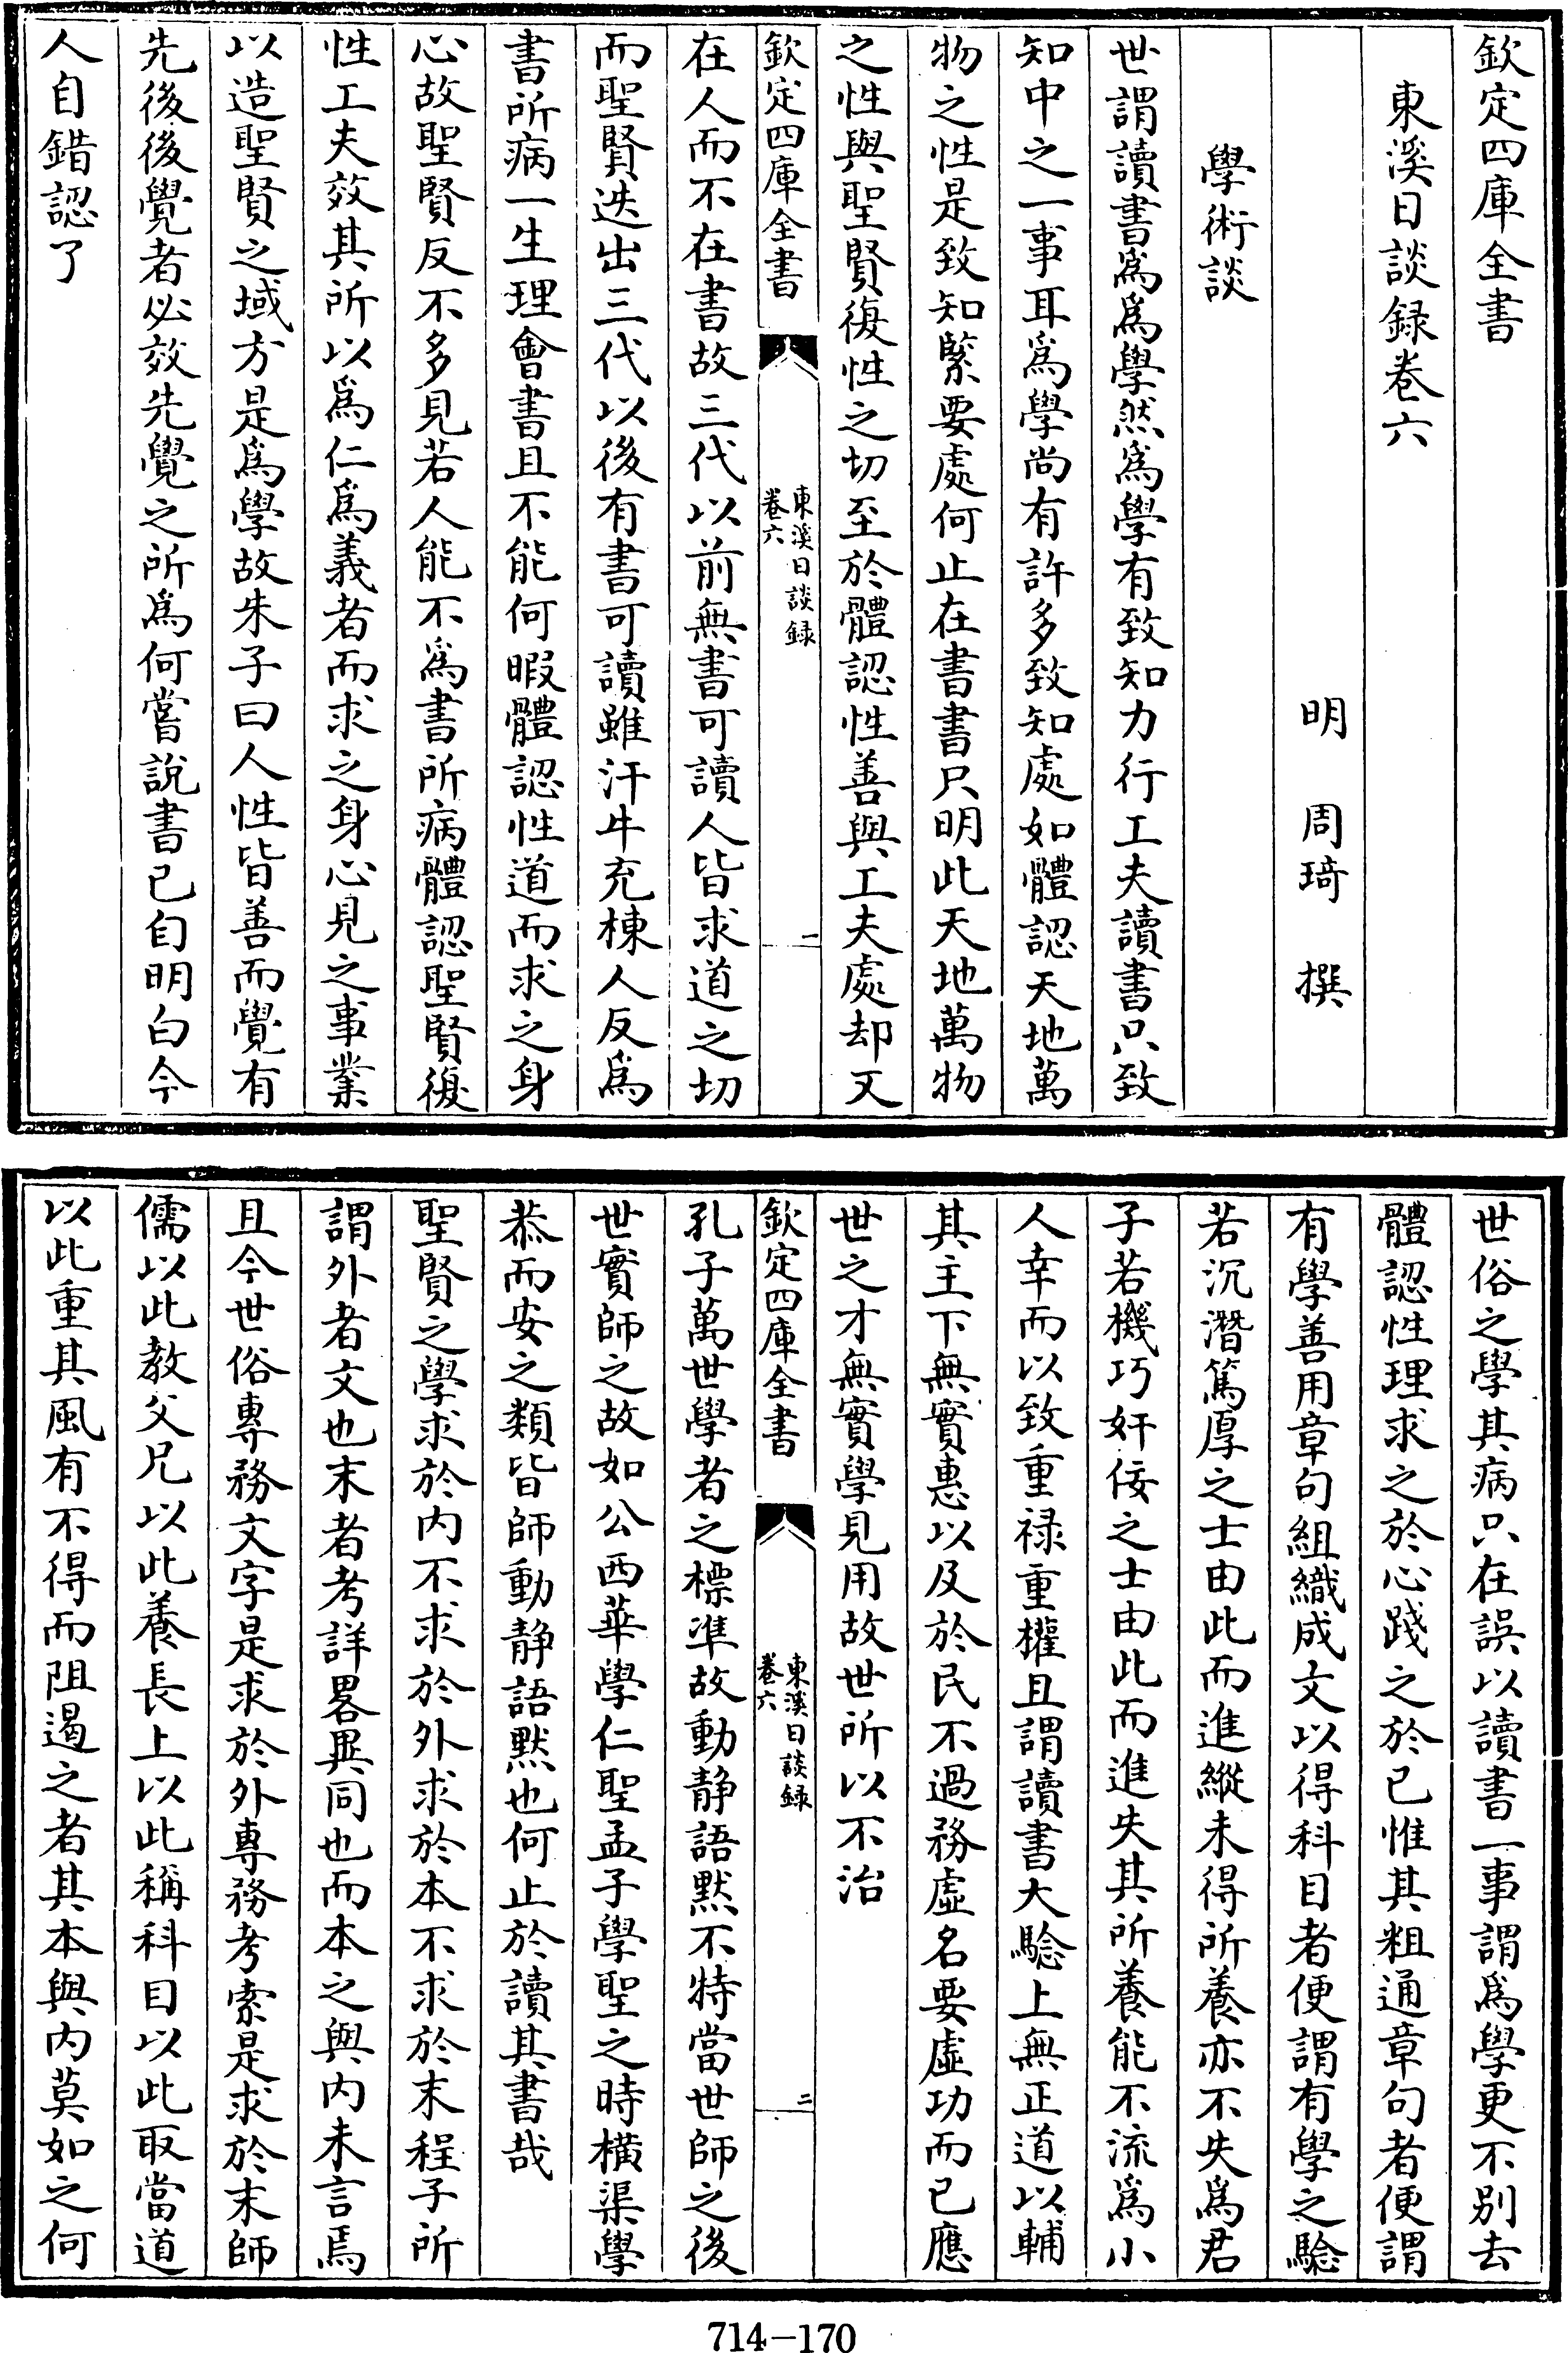 欽定四庫全書
東溪日談録卷六
明 周琦 撰
學術談
世謂讀書爲爲學然爲學有致知力行工夫讀書只致
知中之一事耳爲學尚有許多致知處如體認天地萬
物之性是致知緊要處何止在書書只明此天地萬物
之性與聖賢復性之切至於體認性善與工夫處却又
欽定四庫全書
東溪日談録
卷六
一
在人而不在書故三代以前無書可讀人皆求道之切
而聖賢迭出三代以後有書可讀雖汗牛充棟人反爲
書所病一生理會書且不能何暇體認性道而求之身
心故聖賢反不多見若人能不爲書所病體認聖賢復
性工夫效其所以爲仁爲義者而求之身心見之事業
以造聖賢之域方是爲學故朱子曰人性皆善而覺有
先後後覺者必效先覺之所爲何嘗說書已自明白今
人自錯認了
世俗之學其病只在誤以讀書一事謂爲學更不别去
體認性理求之於心踐之於已惟其粗通章句者便謂
有學善用章句組織成文以得科目者便謂有學之驗
若沉潛篤厚之士由此而進縱未得所養亦不失爲君
子若機巧奸佞之士由此而進失其所養能不流爲小
人幸而以致重禄重權且謂讀書大騐上無正道以輔
其主下無實惠以及於民不過務虛名要虛功而已應
世之才無實學見用故世所以不治
欽定四庫全書
東溪日談録
卷六
二
孔子萬世學者之標準故動静語默不特當世師之後
世實師之故如公西華學仁聖孟子學聖之時橫渠學
恭而安之類皆師動静語默也何止於讀其書哉
聖賢之學求於内不求於外求於本不求於末程子所
謂外者文也末者考詳畧異同也而本之與内未言焉
且今世俗專務文字是求於外專務考索是求於末師
儒以此教父兄以此養長上以此稱科目以此取當道
以此重其風有不得而阻遏之者其本與内莫如之何
714-170